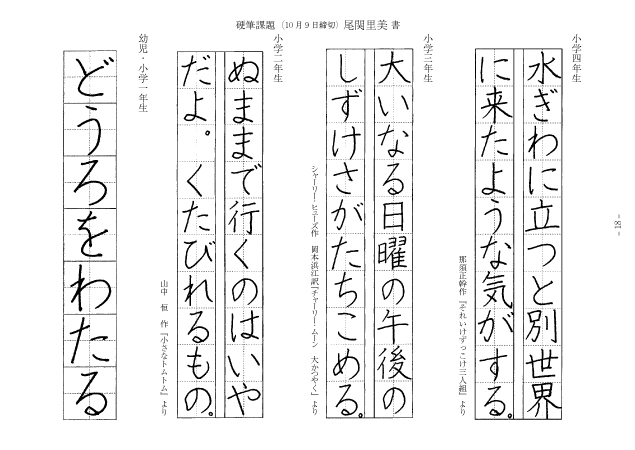 硬筆課題（10月9日締切）尾関里美 書
小学四年生
水ぎわに立つと別世界
に来たような気がする。
那須正幹作『それいけずっこけ三人組』より
小学三年生
大いなる日曜の午後の
しずけさがたちこめる。
シャーリー・ヒューズ作 岡本浜江訳『チャーリー・ムーン 大かつやく』より
小学二年生
ぬままで行くのはいや
だよ。くたびれるもの。
山中 恒 作『小さなトムトム』より
幼児・小学一年生
どうろをわたる
- 18 -